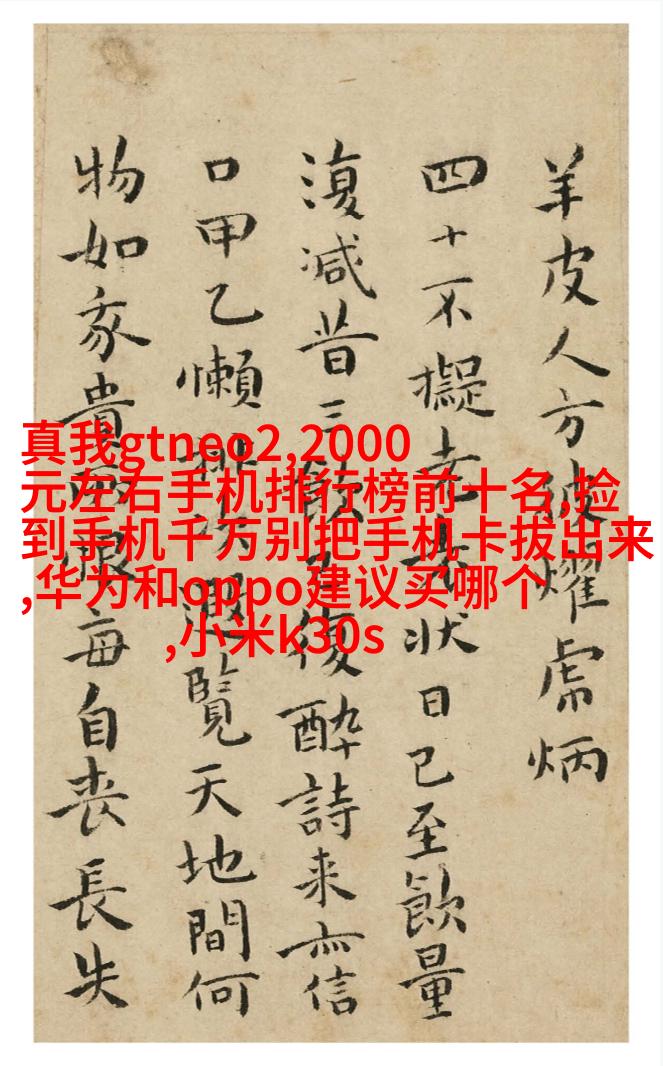 羊皮人方被燿虎炳
四十不擬老衰狀日已至飲量
復减昔三飲復醉詩来亦信
口甲乙懶排次遐覧天地間何
物如豕貴毎自丧長失
真我gtneo2,2000
元左右手机排行榜前十名,捡
到手机千万别把手机卡拔出来
,华为和oppo建议买哪个
,小米k30s